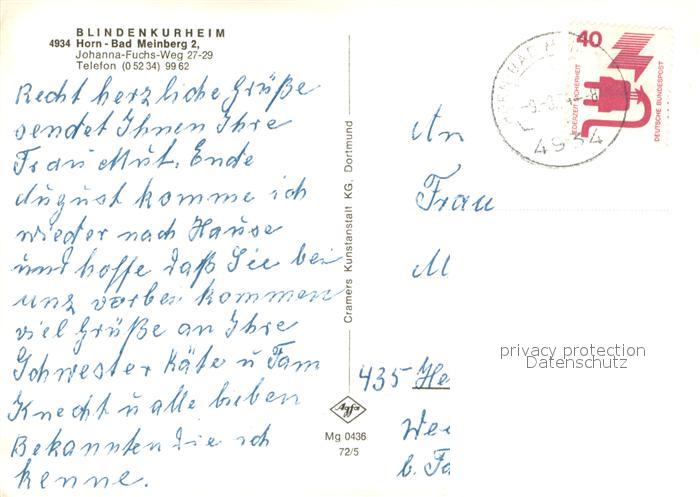 BLINDENKURHEIM
4934 Horn - Bad Meinberg 2,
Johanna-Fuchs-Weg 27-29
Telefon (0 52 34) 99 62
Recht herzliche Grüße
sendet Ihnen Ihre
Frau Mut. Ende
august komme ich
wieder nach Hause
und hoffe daß Sie bei
uns vorbei kommen
viel Grüße an Ihre
Schwester Käte u Fam
Knecht u alle lieben
Bekannten die ich
kenne.
Cramers Kunstanstalt KG, Dortmund
Agfa
Mg 0436
72/5
40
JEDERZEIT SICHERHEIT
DEUTSCHE BUNDESPOST
4934
An
Frau
M
435 He
b. Fa
privacy protection
Datenschutz